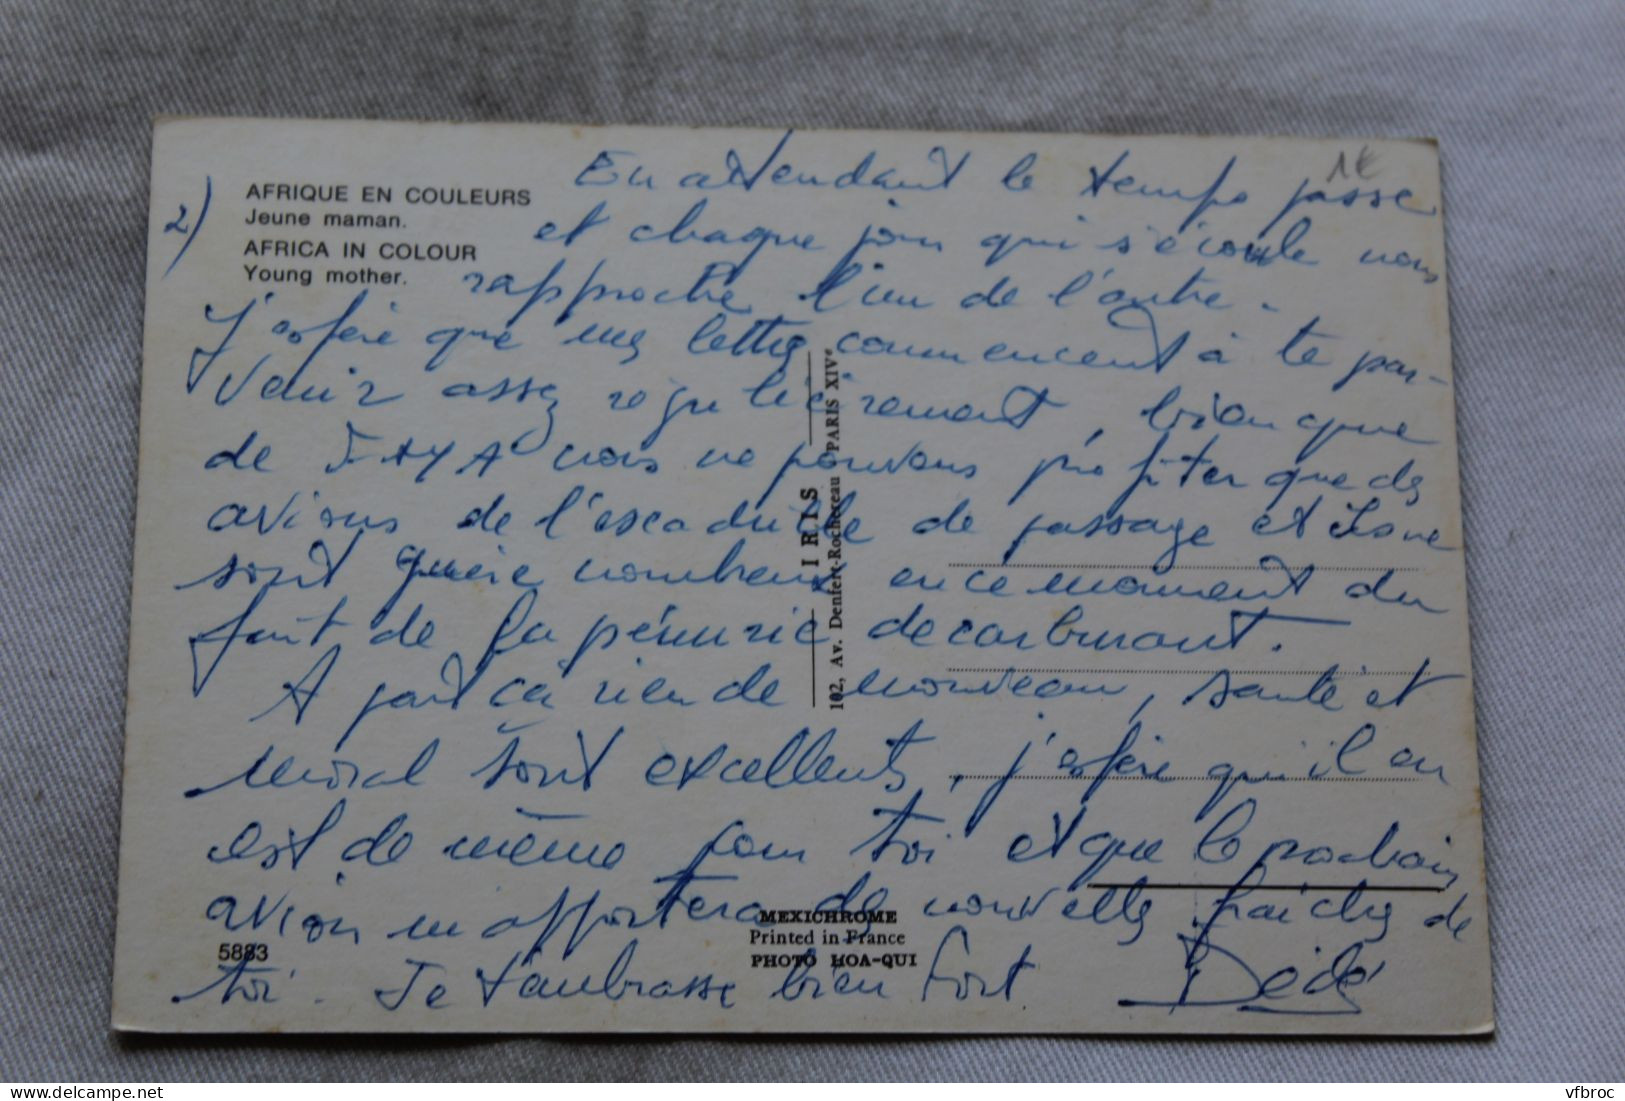 1€
2)
AFRIQUE EN COULEURS
Jeune maman.
AFRICA IN COLOUR
Young mother.
En attendant le temps passe
et chaque jour qui s'écoule nous
rapproche l'un de l'autre.
J'espère que mes lettres commencent à te par-
venir assez régulièrement, bien que
de FAYA nous ne pouvons profiter que des
avions de l'escadrille de passage et ils ne
sont guère nombreux en ce moment du
fait de la pénurie de carburant.
A part ça rien de nouveau, santé et
moral sont excellents, j'espère qu'il en
est de même pour toi et que le prochain
avion m'apportera des nouvelles fraîches de
toi. Je t'embrasse bien fort Dédé
IRIS
102, Av. Denfert-Rochereau PARIS XIVe
MEXICHROME
Printed in France
PHOTO HOA-QUI
5883
vfbroc